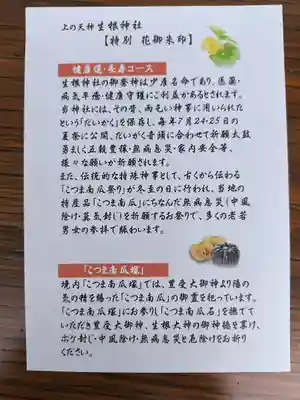 上の天神 生根神社
【特別 花御朱印】
健康運・長寿コース
生根神社の御祭神は少彦名命であり、医薬・
病気平癒・健康守護にご利益があるとされます。
当神社には、その昔、雨乞い神事に用いられたと
いう「だいがく」を保存し、毎年7月24・25日の
夏祭に公開、だいがく音頭に合わせて祈願太鼓
勇ましく五穀豊穣・無病息災・家内安全等、
様々な願いが祈願されます。
また、伝統的な特殊神事として、古くから伝わる
「こつま南瓜祭り」が冬至の日に行われ、当地の
特産品「こつま南瓜」にちなんだ無病息災(中風
除け・莫気封じ)を祈願するお祭りで、多くの老若
男女の参拝で賑わいます。
「こつま南瓜塚」
境内「こつま南瓜塚」では、豊受大御神より陽の
気の精を賜った「こつま南瓜」の御霊を祀っています。
「こつま南瓜塚」にお参りし「こつま南瓜石」を撫でて
いただき豊受大御神、生根大神の御神徳を享け、
ボケ封じ・中風除け・無病息災と厄除けをお祈り
ください。